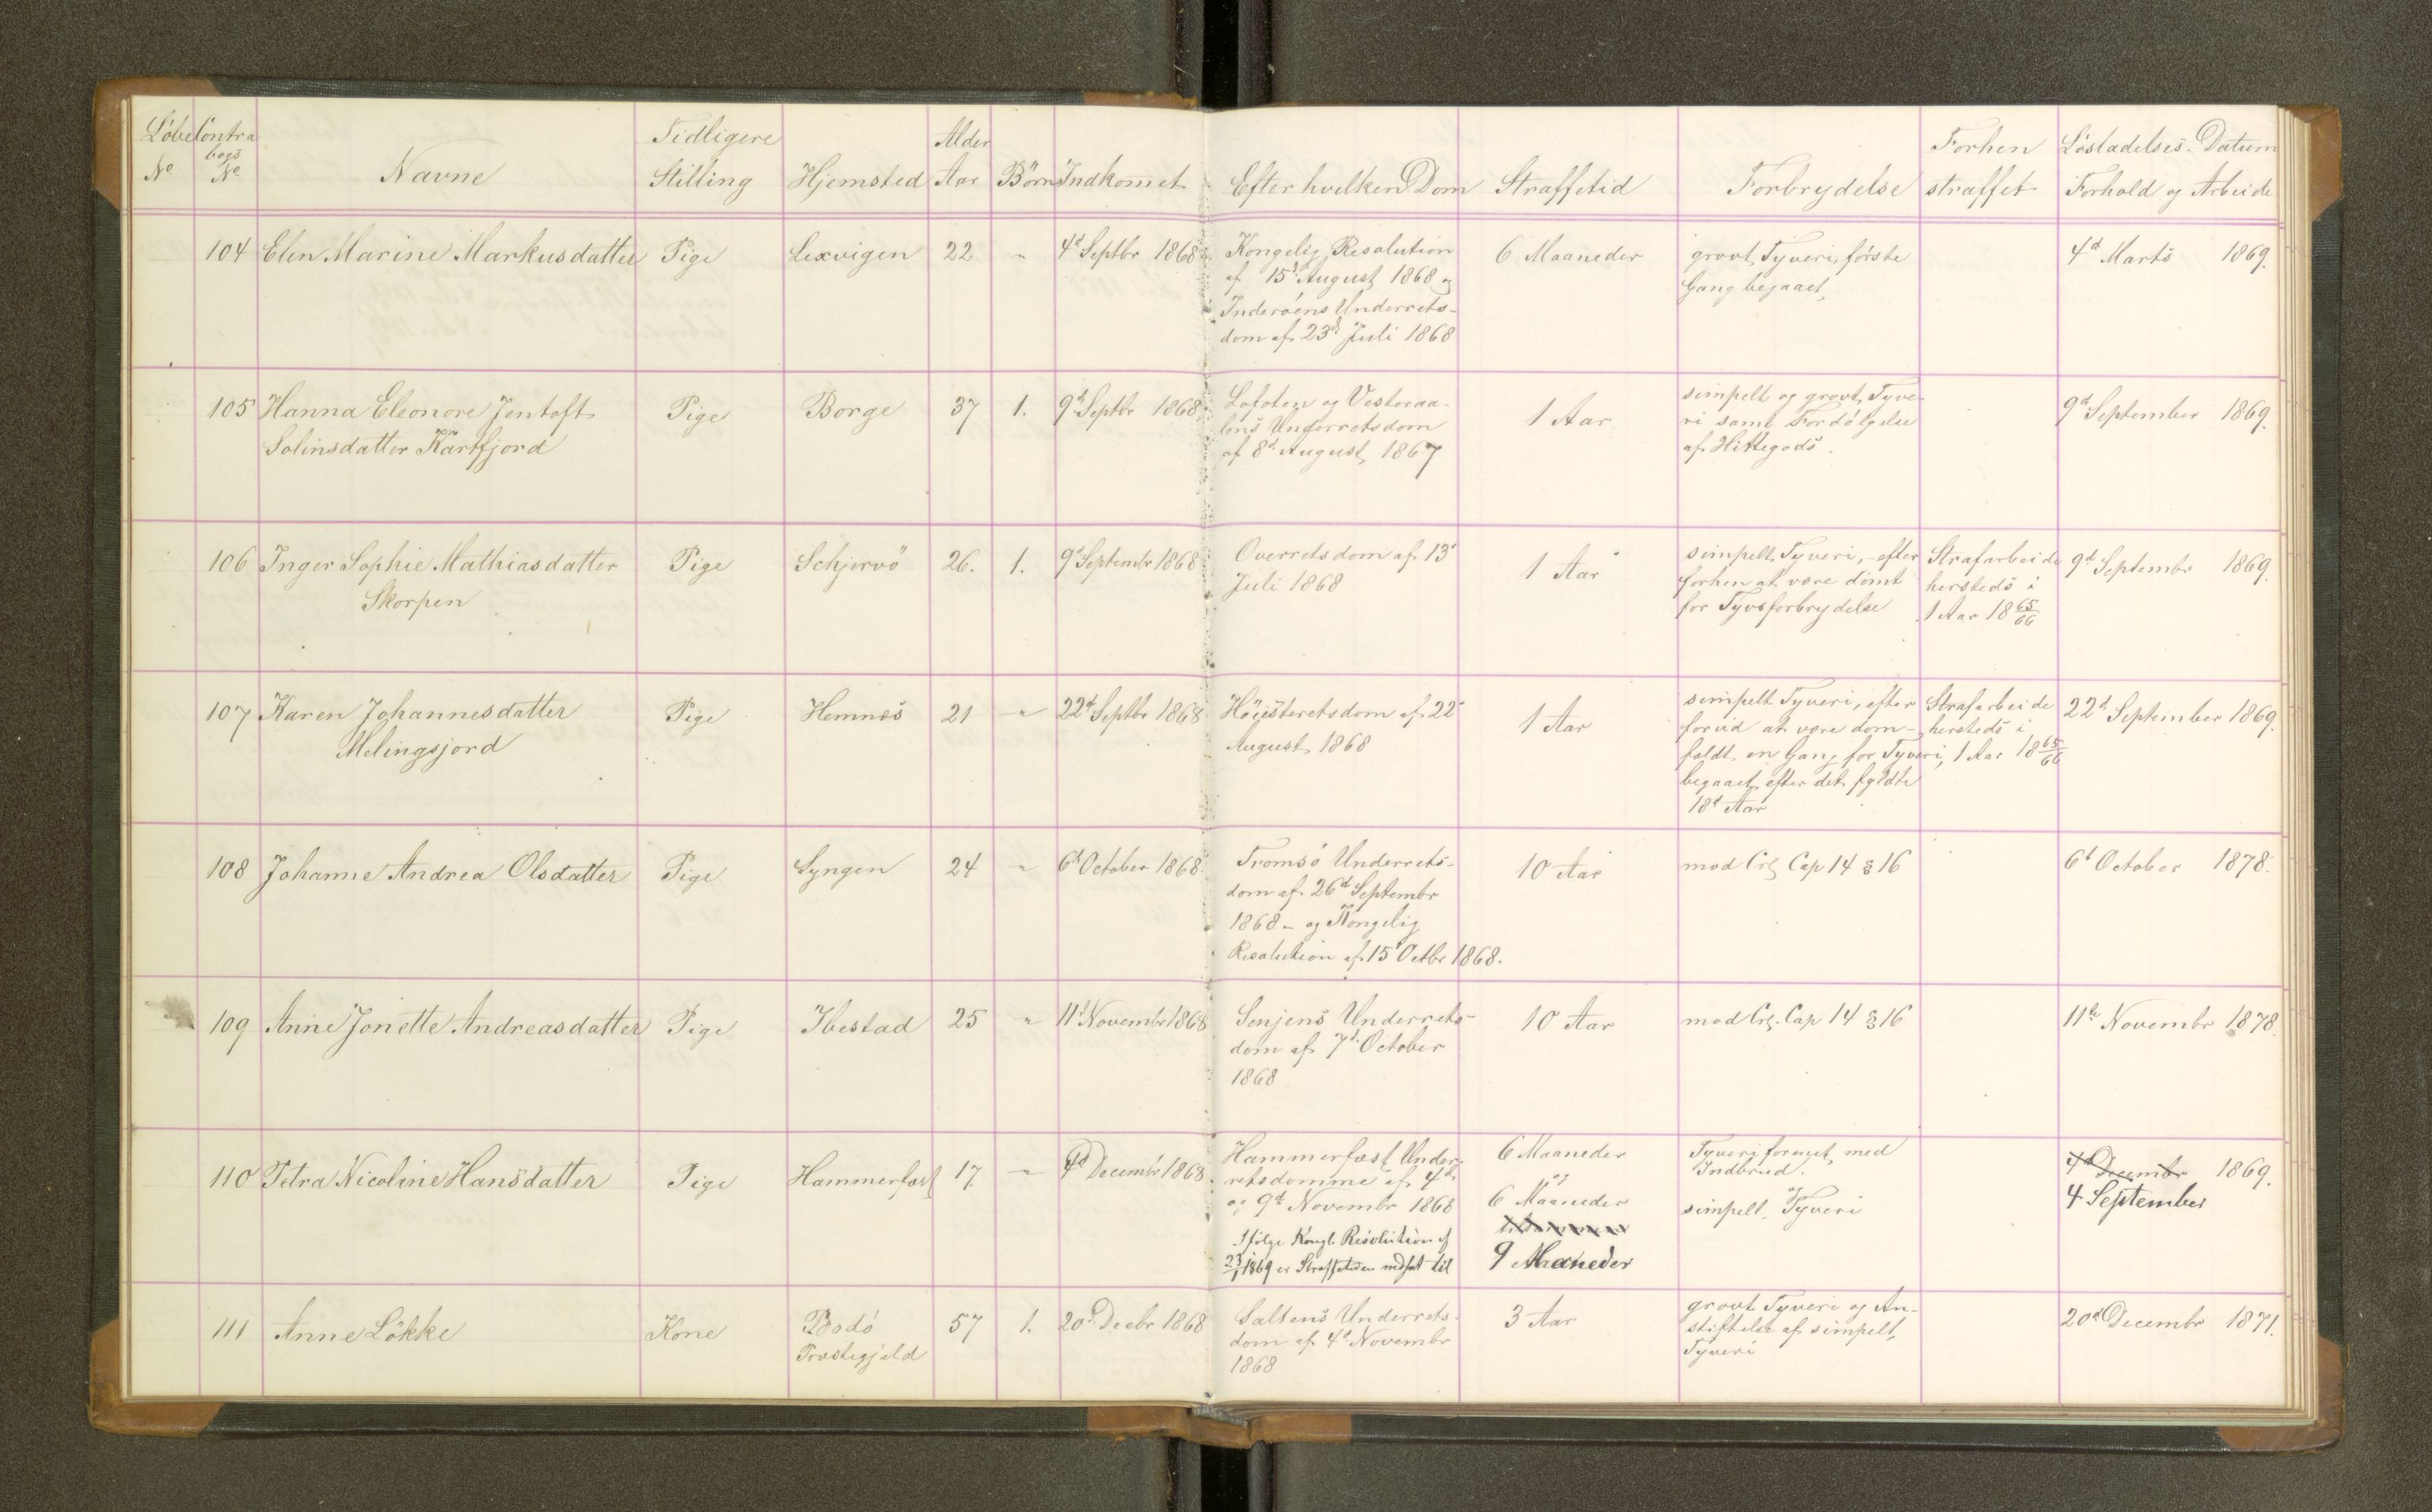 Löbe Contra Tidligere Alder Forhen Lösladelses-Datum
No bogs No Navne Stilling Hjemsted Aar Börn Indkomet Efter hvilken Dom Straffetid Forbrydelse straffet Forhold og Arbeide
104 Elen Marine Markusdatter Pige Lexvigen 22 " 4d Septbr 1868 Kongelig Resolution 6 Maaneder grovt Tyveri, förste 4d Marts 1869.
af 15d August 1868 og Gang begaaet,
Inderöens Underrets-
dom af 23d Juli 1868
105 Hanna Eleonore Jentoft Pige Borge 37 1. 9d Septbr 1868 Lofoten og Vesteraa- 1 Aar simpelt og grovt Tyve- 9d September 1869.
Solinsdatter Kartfjord lens Underretsdom ri samt Fordölgelse
af 8d August 1867 af Hittegods.
106 Inger Sophie Mathiasdatter Pige Schjervö 26. 1. 9d Septembr 1868 Overretsdom af 13d 1 Aar simpelt Tyveri, - efter Strafarbeide 9d Septembr 1869.
Skorpen Juli 1868 forhen at være dömt hersteds i
for Tyvsforbrydelse 1 Aar 18 65/66
107 Karen Johannesdatter Pige Hemnæs 21 " 22d Septbr 1868 Höiesteretsdom af 22d 1 Aar simpelt Tyveri, efter Strafarbeide 22d September 1869.
Melingsjord August 1868 forud at være dom- hersteds i
fældt en Gang for Tyveri, 1 Aar 18 65/66
begaaet efter det fyldte
18d Aar
108 Johanne Andrea Olsdatter Pige Lyngen 24 " 6d October 1868 Tromsö Underrets- 10 Aar mod Crl Cap 14 § 16 6d October 1878.
dom af 26d Septembr
1868 - og Kongelig
Resolution af 15d Octbr 1868.
109 Anne Jonette Andreasdatter Pige Ibestad 25 " 11d Novembr 1868 Senjens Underrets- 10 Aar mod Crl. Cap 14 § 16 11te Novembr 1878.
dom af 7d October
1868
110 Petra Nicoline Hansdatter Pige Hammerfæst 17. " 4d Decembr 1868 Hammerfæst Under- 6 Maaneder Tyveri forenet med 4d Decembr 1869.
retsdomme af 4d og Indbrud. 4 September
og 9d Novembr 1868 6 Maaneder og
Ifölge Kongl. Resolution af simpelt Tyveri
23/1 1869 er Straffetiden nedsat til 9 Maaneder
111 Anne Lökke Kone Bodö 57 1. 20d Decbr 1868 Saltens Underrets- 3 Aar grovt Tyveri og An- 20d Decembr 1871.
Præstegjæld dom af 4d Novembr stiftelse af simpelt
1868 Tyveri